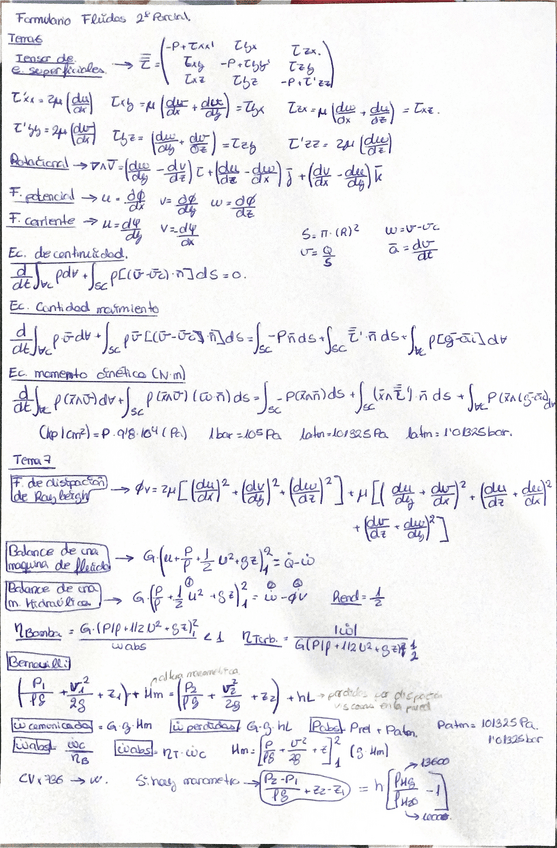 Formulario Fluidos 2º Parcial.
Tema 6
Tensor de e. superficiales → τ̿ = ( -P+τxx' τyx τzx. ; τxy -P+τyy' τzy ; τxz τyz -P+τ'zz )
τ'xx = 2μ(du/dx) τxy = μ(dv/dx + du/dy) = τyx τzx = μ(dw/dx + du/dz) = τxz.
τ'yy = 2μ(dv/dy) τyz = (dw/dy + dv/dz) = τzy τ'zz = 2μ(dw/dz)
Rotacional → ∇∧v̄ = (dw/dy - dv/dz) ī + (du/dz - dw/dx) j̄ + (dv/dx - du/dy) k̄
F. potencial → u = ∂φ/dx v = ∂φ/dy w = ∂φ/dz
F. corriente → u = dψ/dy v = dψ/dx
S = π·(R)² w = v - vc
v = Q/S ā = dv/dt
Ec. de continuidad.
d/dt ∫vc ρ dV + ∫sc ρ[(v̄-v̄c)·n̄] dS = 0.
Ec. Cantidad movimiento
d/dt ∫vc ρ v̄ dV + ∫sc ρ v̄ [(v̄-v̄c)·n̄] dS = ∫sc -P n̄ dS + ∫sc τ̿'·n̄ dS + ∫vc ρ[ḡ-āi] dV
Ec. momento cinético (N·m)
d/dt ∫vc ρ(x̄∧v̄) dV + ∫sc ρ(x̄∧v̄)(w̄·n̄) dS = ∫sc -P(x̄∧n̄) dS + ∫sc (x̄∧τ̿')·n̄ dS + ∫vc ρ(x̄∧(ḡ-āi) dV
(kp/cm²) = P·9'8·10⁴ (Pa) 1bar = 10⁵ Pa 1atm = 101325 Pa 1atm = 1'01325 bar.
Tema 7
F. de disipación de Rayleigh → φv = 2μ[(du/dx)² + (dv/dy)² + (dw/dz)²] + μ[(du/dy + dv/dx)² + (du/dz + dw/dx)²
+ (dv/dz + dw/dy)²]
Balance de una maquina de fluido → G·(u + P/ρ + 1/2 v² + gz)₁² = Q̇ - ẇ
Balance de una m. Hidráulica → G·(P/ρ + 1/2 u² + gz)₁² = ẇ - φv Rend = 1/2
ηBomba = G·(P/ρ + 1/2 v² + gz)₁² / wabs < 1 ηTurb. = |ẇ| / G(P/ρ + 1/2 v² + gz)
Bernouilli
altura manométrica
(P1/ρg + v1²/2g + z1) + Hm = (P2/ρg + v2²/2g + z2) + hL → perdidas por disipacion viscosa en la pared
ẇ comunicada = G·g·Hm ẇ perdidas = G·g·hL Pabs = Prel + Patm. Patm = 101325 Pa.
1'01325 bar
ẇabs = ẇc/ηB ẇabs = ηT·ẇc Hm = [P/ρg + v²/2g + z]₁² (g Hm)
CV x 736 → W. Si hay manometro → P2-P1/ρg + z2-z1 = h[ρHg/ρH2O - 1]
→ 13600
→ 1000.